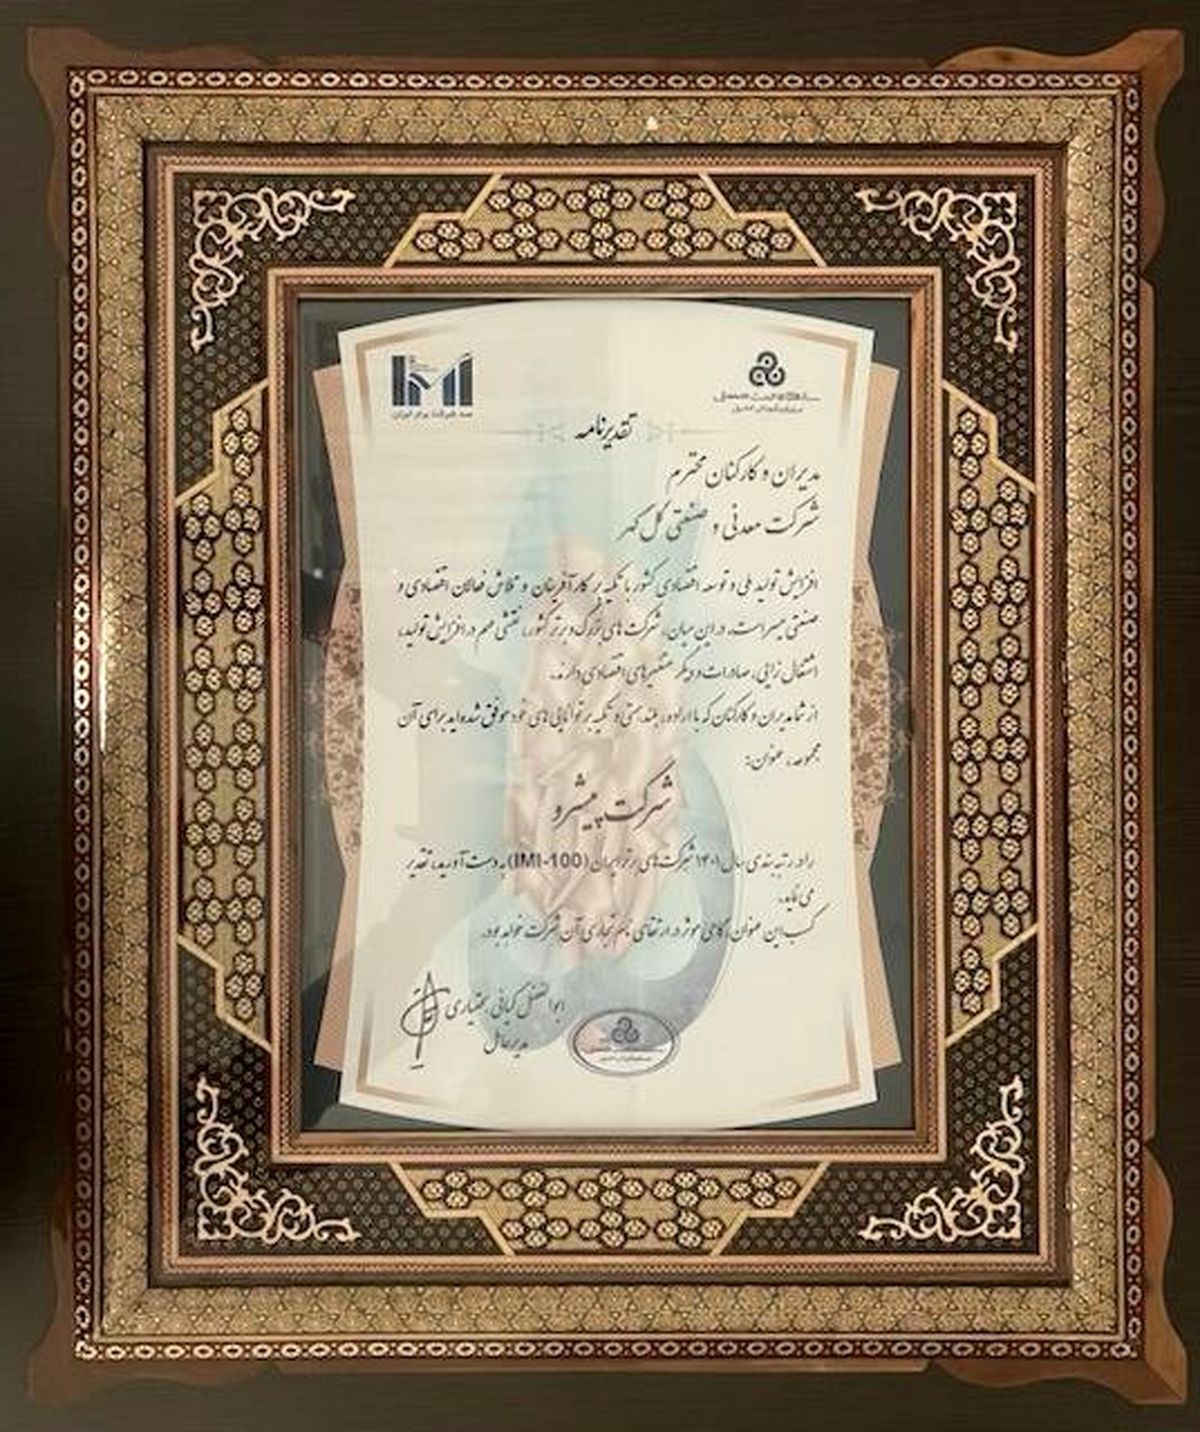 سازمان مدیریت صنعتی
صد شرکت برتر ایران
تقدیرنامه
مدیران و کارکنان محترم
شرکت معدنی و صنعتی گل گهر
افزایش تولید ملی و توسعه اقتصادی کشور با تکیه بر کارآفرینان و تلاش فعالان اقتصادی و
صنعتی میسر است. در این میان، شرکت های بزرگ و برتر کشور، نقشی مهم در افزایش تولید،
اشتغال زایی، صادرات و دیگر متغیرهای اقتصادی دارند.
از شما مدیران و کارکنان که با اراده، بلند همتی و تکیه بر توانایی های خود موفق شده اید برای آن
مجموعه، عنوان:
شرکت پیشرو
را در رتبه بندی سال ۱۴۰۱ شرکت های برتر ایران (IMI-100) به دست آورید، تقدیر
می نماید.
کسب این عنوان، گامی موثر در ارتقای نام تجاری آن شرکت خواهد بود.
ابوالفضل کیانی بختیاری
مدیرعامل